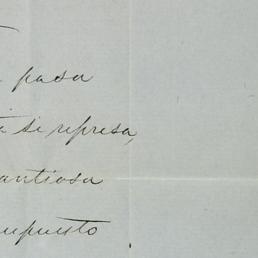 pasa
si represa,
antiosa
upuesto